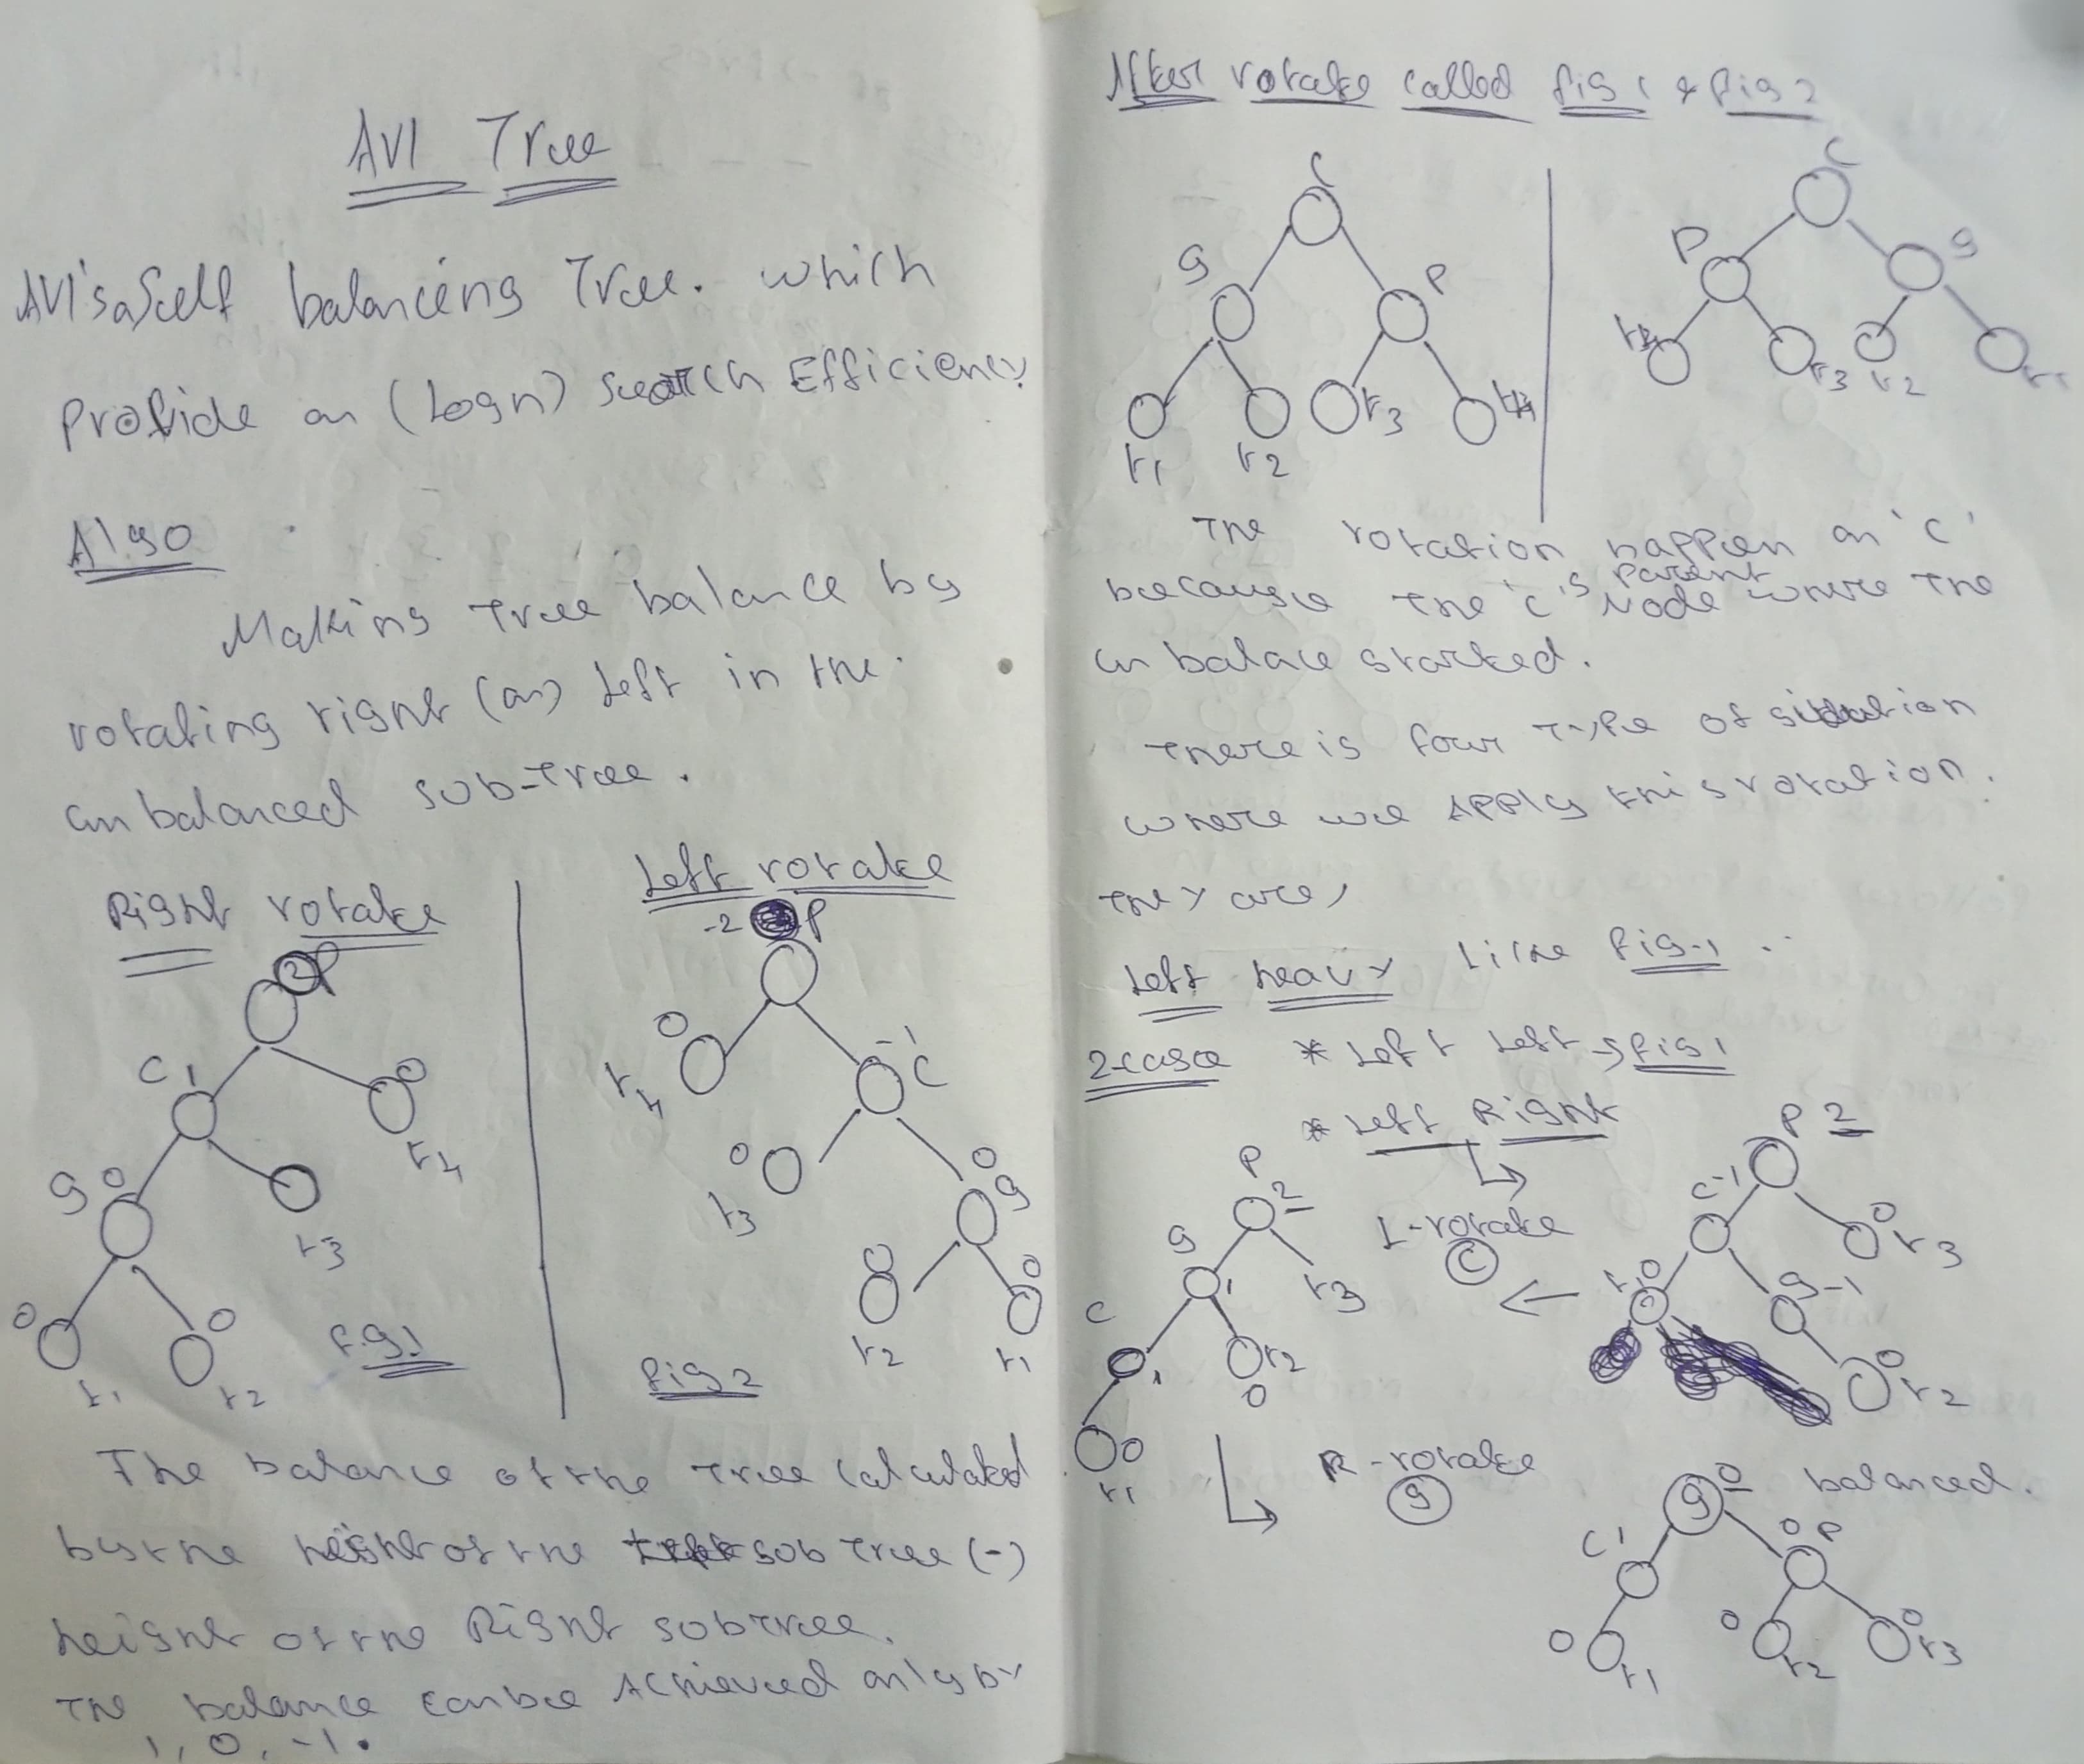 AVl Tree
AVl'saSelf balancing Tree. which
Provide an (Logn) Search Efficiency.
Algo
Making Tree balance by
rotating right (or) Left in the
unbalanced sub-Tree.
Right rotate
Left rotate
2 P
-2 P
C 1
0
t4
0
t4
-1 C
g 0
t3
0
t3
0
g
0
t1
0
t2
0
t2
0
t1
fig1
fig2
The balance of the Tree Calculated
by the height of the Left sub Tree (-)
height of the Right subtree.
The balance can be Achieved only by
1, 0, -1.
After rotate called fig1 & fig2
C
g
P
t1
t2
t3
t4
C
P
g
t4
t3
t2
t1
The rotation happen on 'C'
because the 'C' is parent Node where the
unbalace started.
There is four Type of situation
where we Apply this rotation.
They are,
Left heavy Like fig-1
2 case * Left Left → fig1
* Left Right
P 2
C -1
0 t3
t1 0
g -1
0 t2
L-rotate
C
P
2
g
1
t3
C
1
t2
0
0
t1
R-rotate
g
g 0 balanced.
C 1
0 P
0 t1
0 t2
0 t3